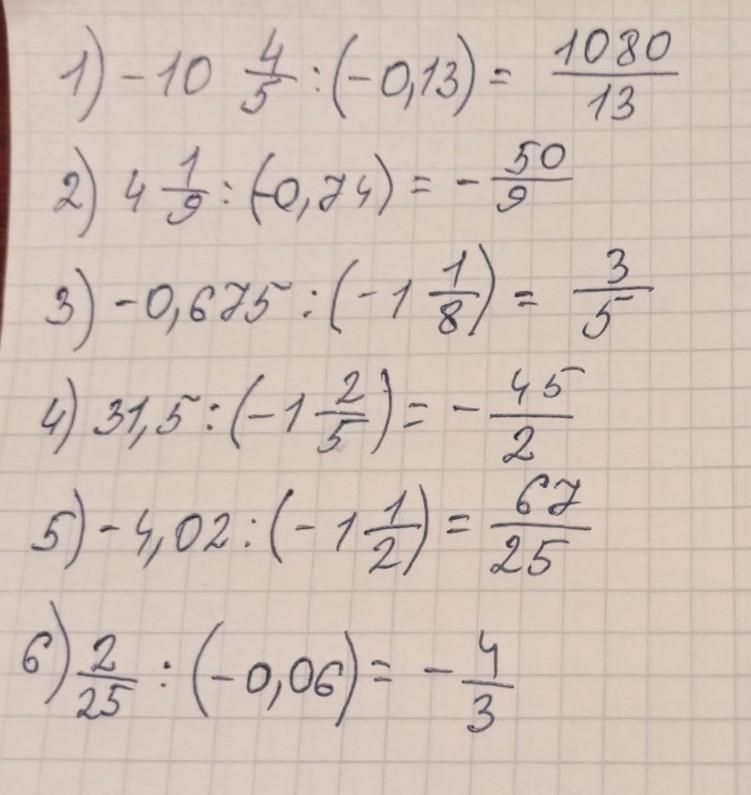 1) -10 4/5 : (-0,13) = 1080/13
2) 4 1/9 : (-0,74) = - 50/9
3) -0,675 : (-1 1/8) = 3/5
4) 31,5 : (-1 2/5) = - 45/2
5) -4,02 : (-1 1/2) = 67/25
6) 2/25 : (-0,06) = - 4/3